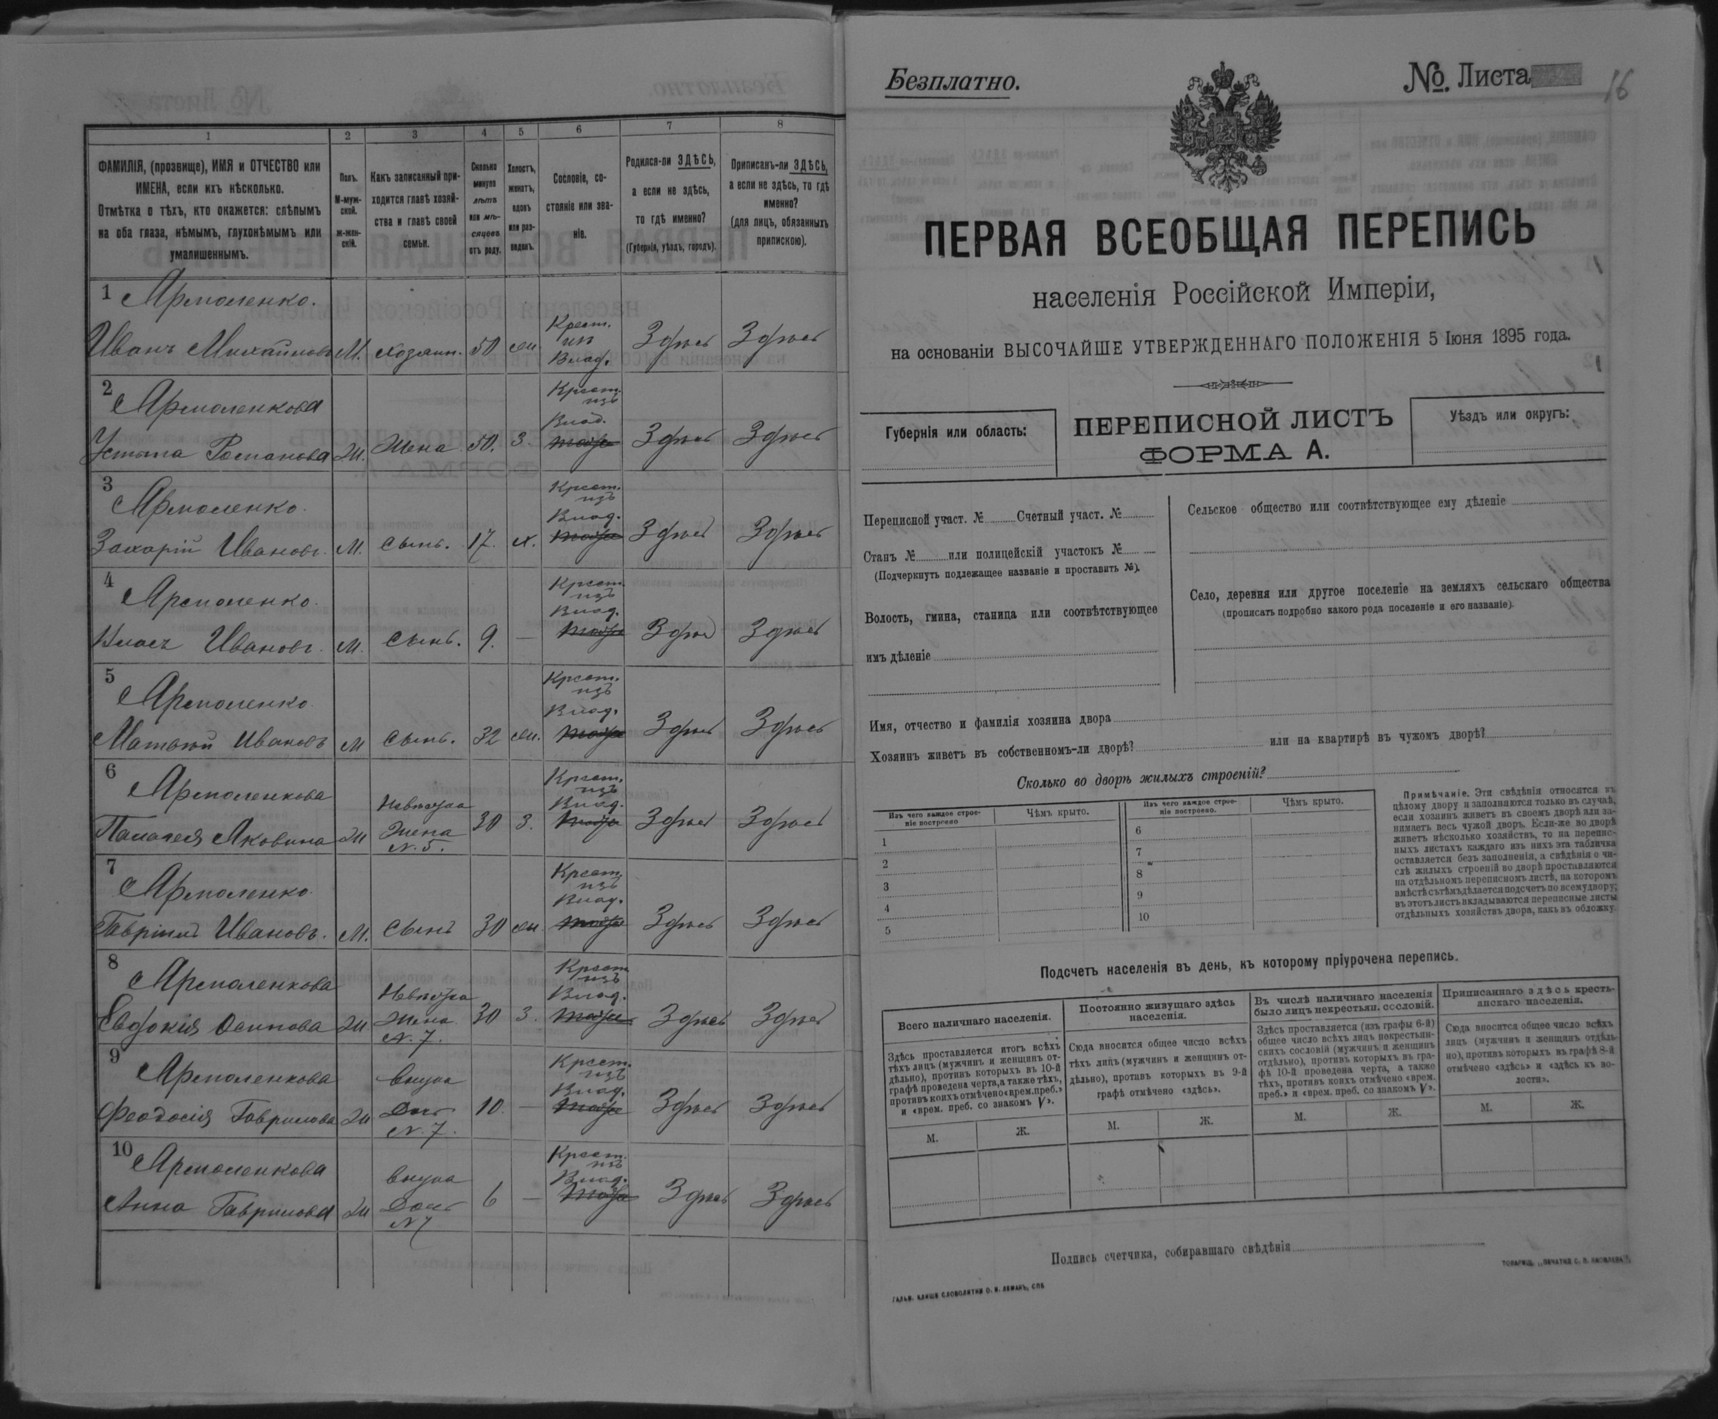 1
2
3
4
5
6
7
8
ФАМИЛІЯ, (прозвище), ИМЯ и ОТЧЕСТВО или
ИМЕНА, если ихъ нѣсколько.
Отмѣтка о тѣхъ, кто окажется: слѣпымъ
на оба глаза, нѣмымъ, глухонѣмымъ или
умалишеннымъ.
Полъ.
М-муж-
ской.
ж-жен-
скій.
Какъ записанный при-
ходится главѣ хозяй-
ства и главѣ своей
семьи.
Сколько
минуло
лѣтъ
или мѣ-
сяцевъ
отъ роду.
Холостъ,
женатъ,
вдовъ
или раз-
веденъ.
Сословіе, со-
стояніе или зва-
ніе.
Родился-ли ЗДѢСЬ,
а если не здѣсь,
то гдѣ именно?
(Губернія, уѣздъ, городъ).
Приписанъ-ли ЗДѢСЬ,
а если не здѣсь, то гдѣ
именно?
(для лицъ, обязанныхъ
припискою).
1 Ярмоленко.
Иванъ Михайловъ М. хозяин. 50 жн. Крест. изъ Влад. Здѣсь Здѣсь
2 Ярмоленкова
Устина Романова Ж. Жена 50. з. Крест. изъ Влад. Здѣсь Здѣсь
3 Ярмоленко.
Захарій Ивановъ. М. сынъ. 17. х. Крест. изъ Влад. Здѣсь Здѣсь
4 Ярмоленко.
Власъ Ивановъ. М. сынъ. 9. — Крест. изъ Влад. Здѣсь Здѣсь
5 Ярмоленко
Матвѣй Ивановъ М сынъ. 32 жн. Крест. изъ Влад. Здѣсь Здѣсь
6 Ярмоленкова
Яковина Ж Невѣстка Жена N. 5. 30 з. Крест. изъ Влад. Здѣсь Здѣсь
7 Ярмоленко
Гавріилъ Ивановъ. М. сынъ 30 жн Крест. изъ Влад. Здѣсь Здѣсь
8 Ярмоленкова
Евдокія Осипова Ж Невѣстка Жена N. 7. 30 з. Крест изъ Влад. Здѣсь Здѣсь
9 Ярмоленкова
Феодосія Гаврилова Ж внука Дочь N. 7. 10 — Крест. изъ Влад. Здѣсь Здѣсь
10 Ярмоленкова
Анна Гаврилова Ж внука Дочь N 7 6 — Крест. изъ Влад. Здѣсь Здѣсь
Безплатно.
№. Листа
16
ПЕРВАЯ ВСЕОБЩАЯ ПЕРЕПИСЬ
населенія Россійской Имперіи,
на основаніи ВЫСОЧАЙШЕ УТВЕРЖДЕННАГО ПОЛОЖЕНІЯ 5 Іюня 1895 года.
Губернія или область:
ПЕРЕПИСНОЙ ЛИСТЪ
ФОРМА А.
Уѣздъ или округъ:
Переписной участ. № Счетный участ. №
Станъ № или полицейскій участокъ №
(Подчеркнуть подлежащее названіе и проставить №).
Волость, гмина, станица или соотвѣтствующее
имъ дѣленіе
Сельское общество или соотвѣтствующее ему дѣленіе
Село, деревня или другое поселеніе на земляхъ сельскаго общества
(прописать подробно какого рода поселеніе и его названіе).
Имя, отчество и фамилія хозяина двора
Хозяинъ живетъ въ собственномъ-ли дворѣ? или на квартирѣ въ чужомъ дворѣ?
Сколько во дворѣ жилыхъ строеній?
Изъ чего каждое строе-
ніе построено
Чѣмъ крыто.
Изъ чего каждое строе-
ніе построено.
Чѣмъ крыто.
1
2
3
4
5
6
7
8
9
10
Примѣчаніе. Эти свѣдѣнія относятся къ
цѣлому двору и заполняются только въ случаѣ,
если хозяинъ живетъ въ своемъ дворѣ или за-
нимаетъ весь чужой дворъ. Если-же во дворѣ
живетъ нѣсколько хозяйствъ, то на перепис-
ныхъ листахъ каждаго изъ нихъ эта табличка
оставляется безъ заполненія, а свѣдѣнія о чи-
слѣ жилыхъ строеній во дворѣ проставляются
на отдѣльномъ переписномъ листѣ, на которомъ
вмѣстѣ съ тѣмъ дѣлается подсчетъ по всему двору;
въ этотъ листъ вкладываются переписные листы
отдѣльныхъ хозяйствъ двора, какъ въ обложку.
Подсчетъ населенія въ день, къ которому пріурочена перепись.
Всего наличнаго населенія.
Здѣсь проставляется итогъ всѣхъ
тѣхъ лицъ (мужчинъ и женщинъ от-
дѣльно), противъ которыхъ въ 10-й
графѣ проведена черта, а также тѣхъ,
противъ коихъ отмѣчено «врем. преб.»
и «врем. преб. со знакомъ V».
М. Ж.
Постоянно живущаго здѣсь
населенія.
Сюда вносится общее число всѣхъ
тѣхъ лицъ (мужчинъ и женщинъ от-
дѣльно), противъ которыхъ въ 9-й
графѣ отмѣчено «здѣсь».
М. Ж.
Въ числѣ наличнаго населенія
было лицъ некрестьян. сословій.
Здѣсь проставляется (изъ графы 6-й)
общее число всѣхъ лицъ некрестьян-
скихъ сословій (мужчинъ и женщинъ
отдѣльно), противъ которыхъ въ гра-
фѣ 10-й проведена черта, а также
тѣхъ, противъ коихъ отмѣчено «врем.
преб.» и «врем. преб. со знакомъ V».
М. Ж.
Приписаннаго здѣсь кресть-
янскаго населенія.
Сюда вносится общее число всѣхъ
лицъ (мужчинъ и женщинъ отдѣль-
но), противъ которыхъ въ графѣ 8-й
отмѣчено «здѣсь» и «здѣсь къ во-
лости».
М. Ж.
Подпись счетчика, собиравшаго свѣдѣнія